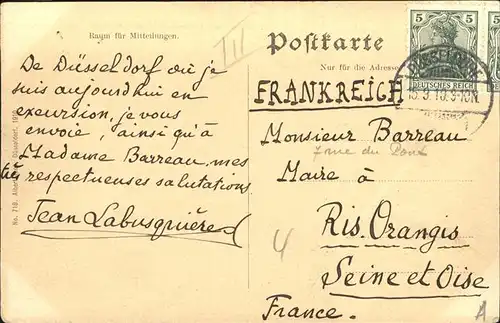 Raum für Mitteilungen.
De Düsseldorf où je
suis aujourd'hui en
excursion, je vous
envoie, ainsi qu'à
Madame Barreau, mes
très respectueuses salutations
Jean Labusquière
III
Postkarte
Nur für die Adresse
5 5
DEUTSCHES REICH
FRANKREICH
Monsieur Barreau
7 rue du Pont
Maire à
Ris. Orangis
Seine et Oise
France.
4
A